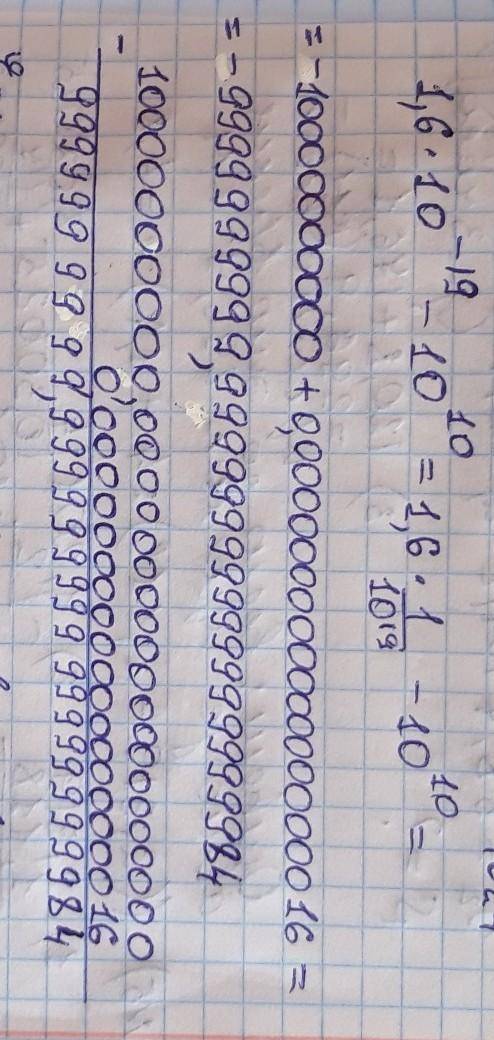 1,6·10⁻¹⁹ − 10¹⁰ = 1,6 · 1/10¹⁹ − 10¹⁰ =
= −10000000000 + 0,00000000000000000016 =
= −9999999999,99999999999999999984
− 10000000000,00000000000000000000
0,00000000000000000016
9999999999,99999999999999999984